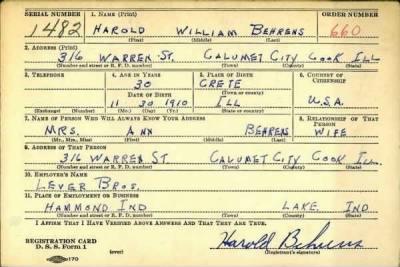 SERIAL NUMBER 1. NAME (Print) ORDER NUMBER
1482 HAROLD WILLIAM BEHRENS 660
(First) (Middle) (Last)
2. ADDRESS (Print)
316 WARREN ST. CALUMET CITY COOK ILL
(Number and street or R. F. D. number) (Town) (County) (State)
3. TELEPHONE 4. AGE IN YEARS 5. PLACE OF BIRTH 6. COUNTRY OF CITIZENSHIP
30 CRETE
DATE OF BIRTH (Town or county)
11 30 1910 ILL U.S.A.
(Exchange) (Number) (Mo.) (Day) (Yr.) (State or country)
7. NAME OF PERSON WHO WILL ALWAYS KNOW YOUR ADDRESS 8. RELATIONSHIP OF THAT PERSON
MRS. ANN BEHRENS WIFE
(Mr., Mrs., Miss) (First) (Middle) (Last)
9. ADDRESS OF THAT PERSON
316 WARREN ST. CALUMET CITY COOK ILL.
(Number and street or R. F. D. number) (Town) (County) (State)
10. EMPLOYER'S NAME
LEVER BROS.
11. PLACE OF EMPLOYMENT OR BUSINESS
HAMMOND IND LAKE. IND
(Number and street or R. F. D. number) (Town) (County) (State)
I AFFIRM THAT I HAVE VERIFIED ABOVE ANSWERS AND THAT THEY ARE TRUE.
REGISTRATION CARD
D. S. S. Form 1 (over) Harold Behrens
(Registrant's signature)